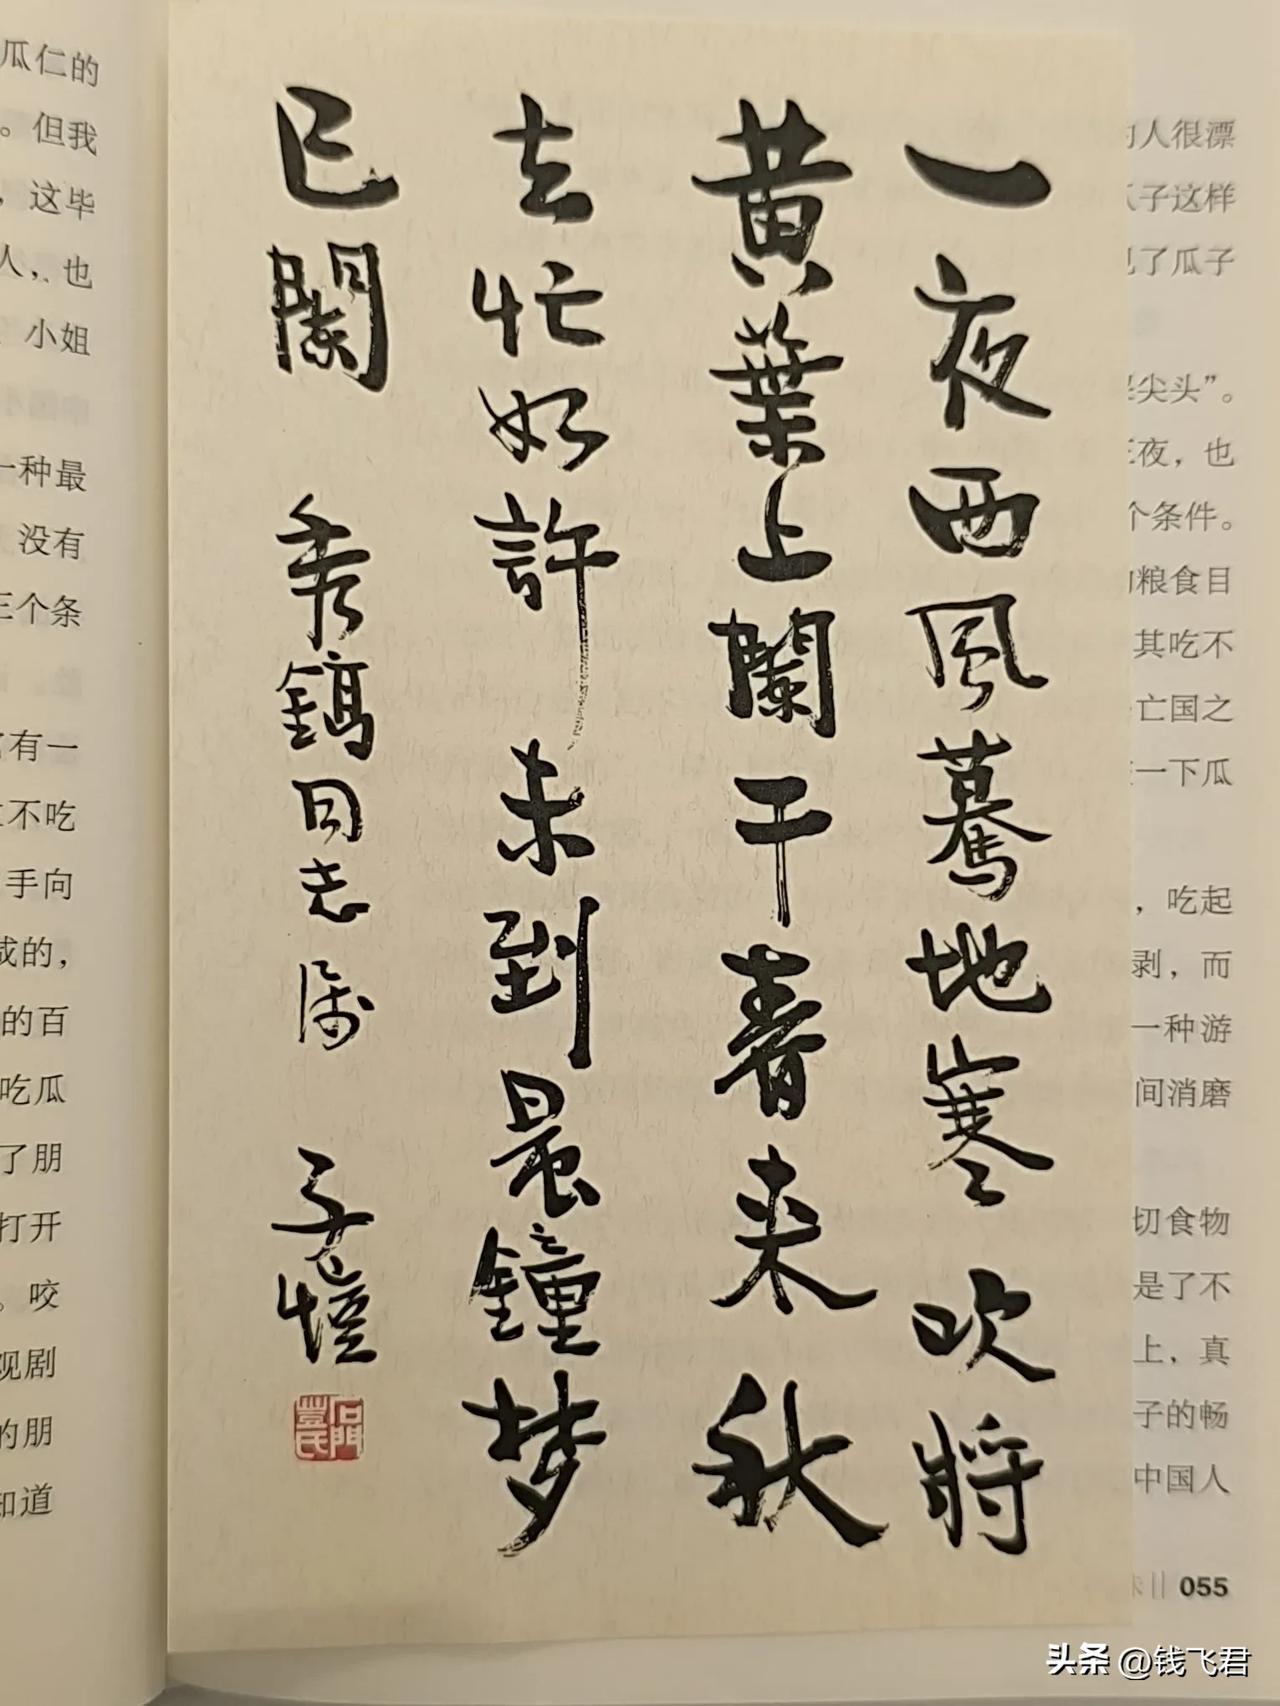 一夜西风蓦地寒 吹将
黄葉上闌干春来秋
去忙如許 未到晨鐘梦
已闌 秀鎬同志属 子愷
石門豐氏
瓜仁的
。但我
，这毕
人，也
小姐
一种最
没有
三个条
官有一
不吃
手向
成的，
的百
吃瓜
了朋
打开
。咬
观剧
的朋
知道
的人很漂
瓜子这样
见了瓜子
尖头”。
三夜，也
个条件。
的粮食目
其吃不
亡国之
一下瓜
，吃起
剥，而
一种游
间消磨
切食物
是了不
上，真
子的畅
中国人
055
头条 @钱飞君